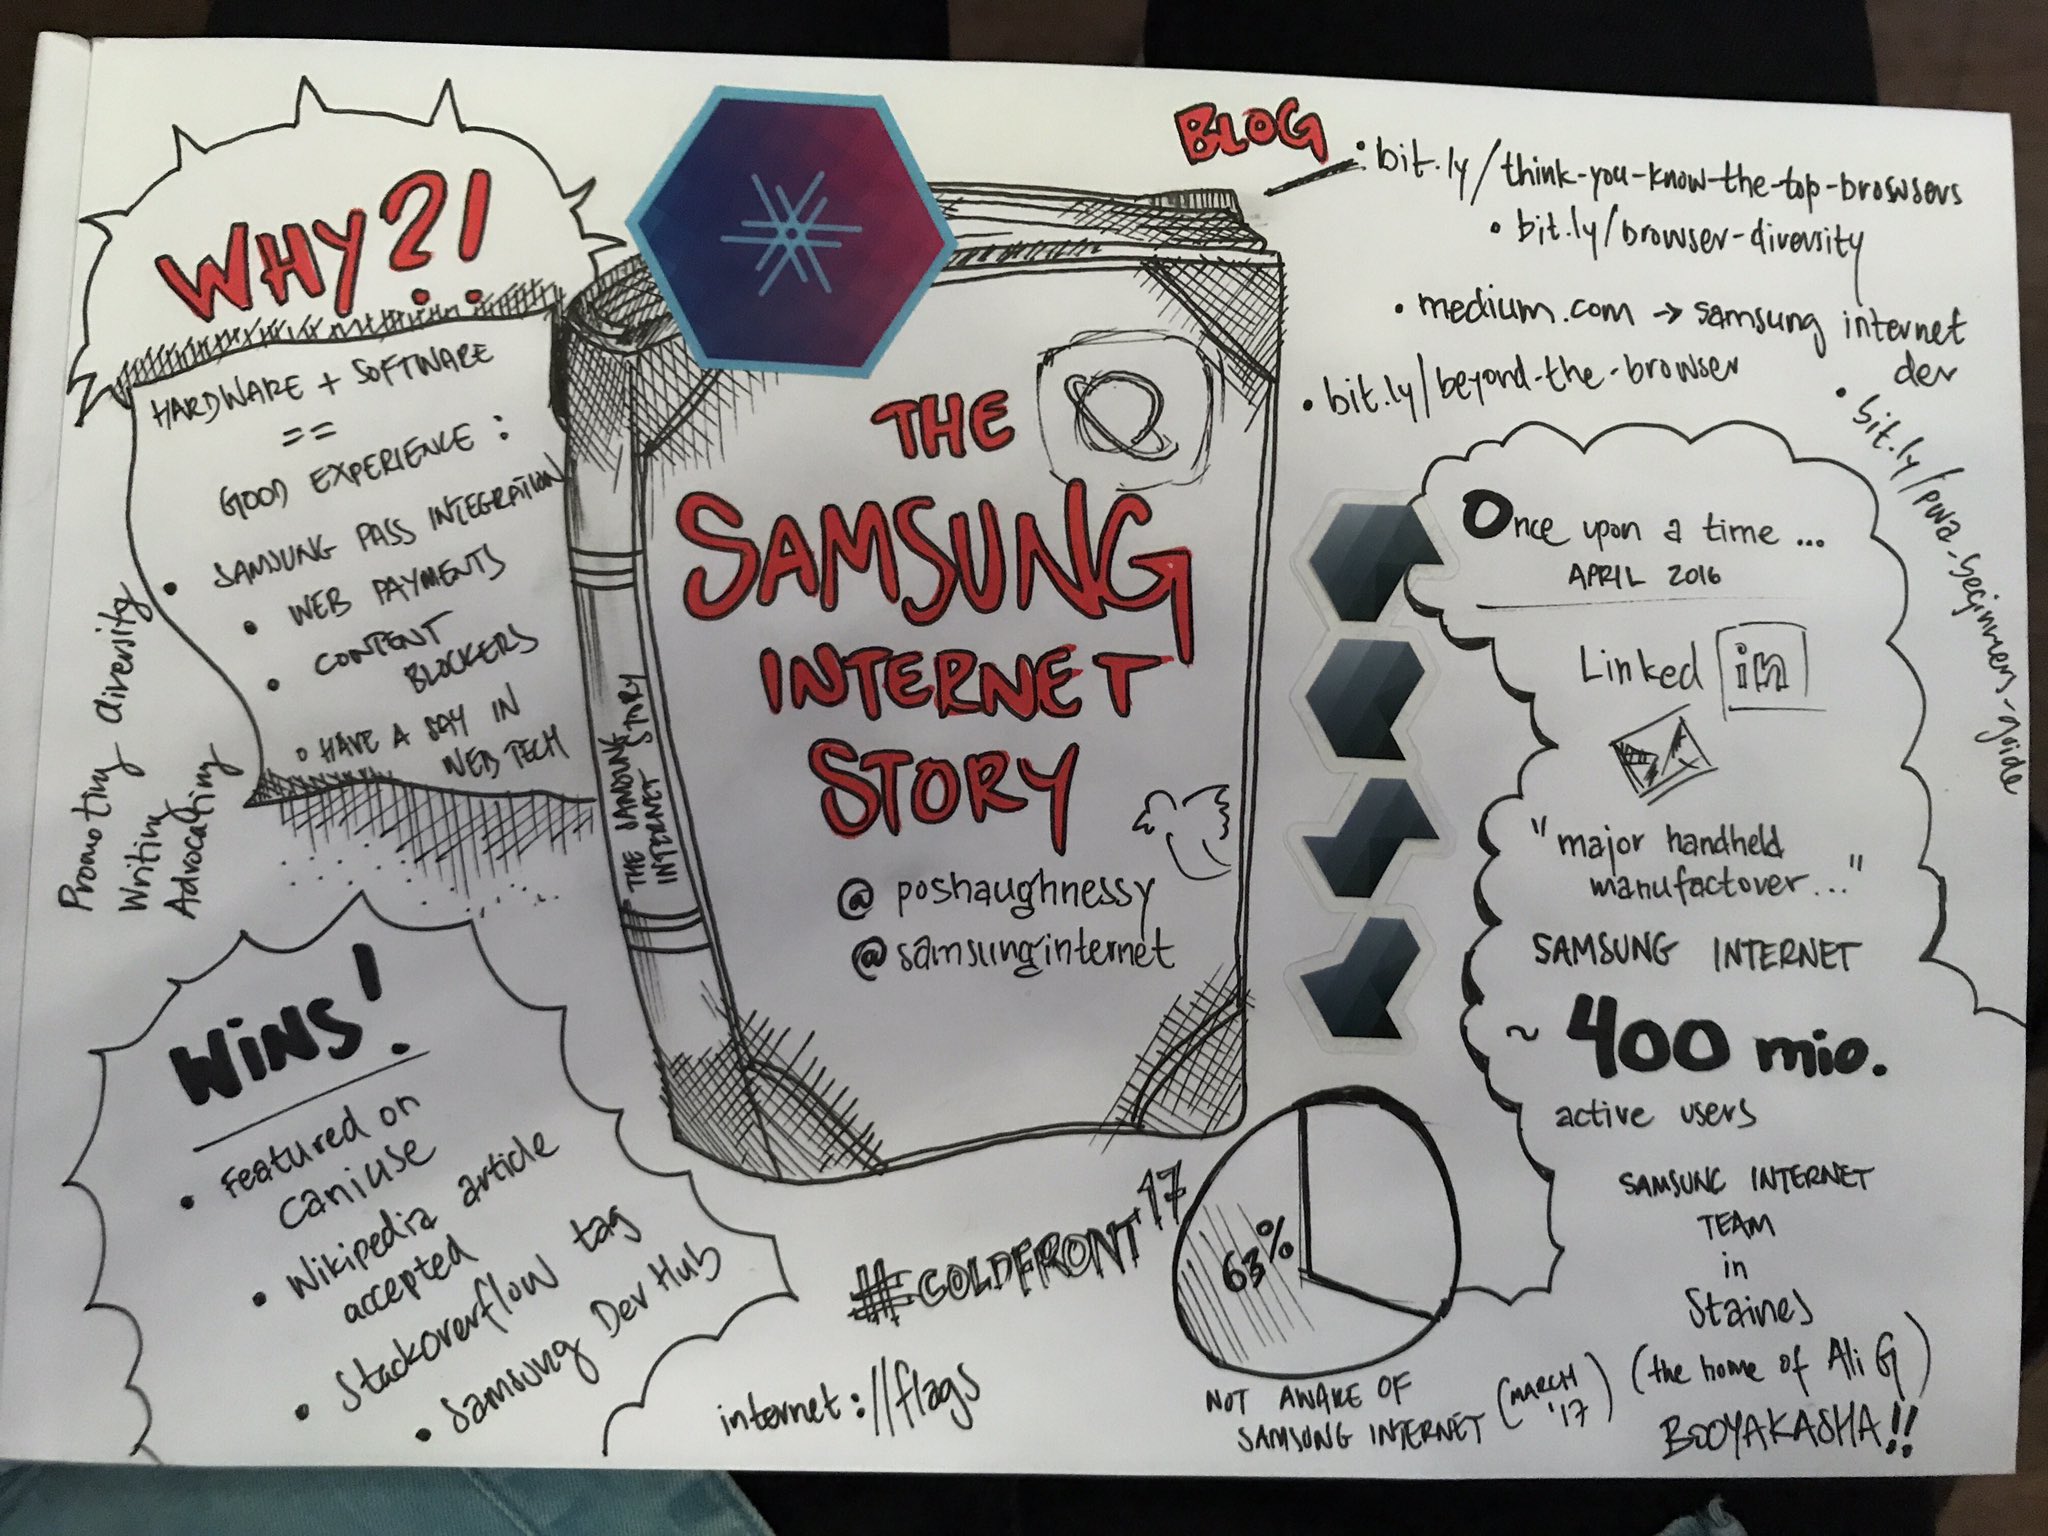 WHY?!
HARDWARE + SOFTWARE
==
GOOD EXPERIENCE :
• SAMSUNG PASS INTEGRATION
• WEB PAYMENTS
• CONTENT
BLOCKERS
• HAVE A SAY IN
WEB TECH
Promoting diversity
Writing
Advocating
WiNS!
• Featured on
caniuse
• Wikipedia article
accepted
• Stackoverflow tag
• Samsung Dev Hub
THE SAMSUNG
INTERNET STORY
THE
SAMSUNG
INTERNET
STORY
@ poshaughnessy
@samsunginternet
#COLDFRONT'17
internet://flags
BLOG
• bit.ly/think-you-know-the-top-browsers
• bit.ly/browser-diversity
• medium.com → samsung internet
dev
• bit.ly/beyond-the-browser
• bit.ly/pwa-beginners-guide
Once upon a time ...
APRIL 2016
Linked in
"major handheld
manufactover..."
SAMSUNG INTERNET
~ 400 mio.
active users
SAMSUNG INTERNET
TEAM
in
Staines
(the home of Ali G)
BOOYAKASHA!!
63%
NOT AWARE OF
SAMSUNG INTERNET (MARCH
'17)